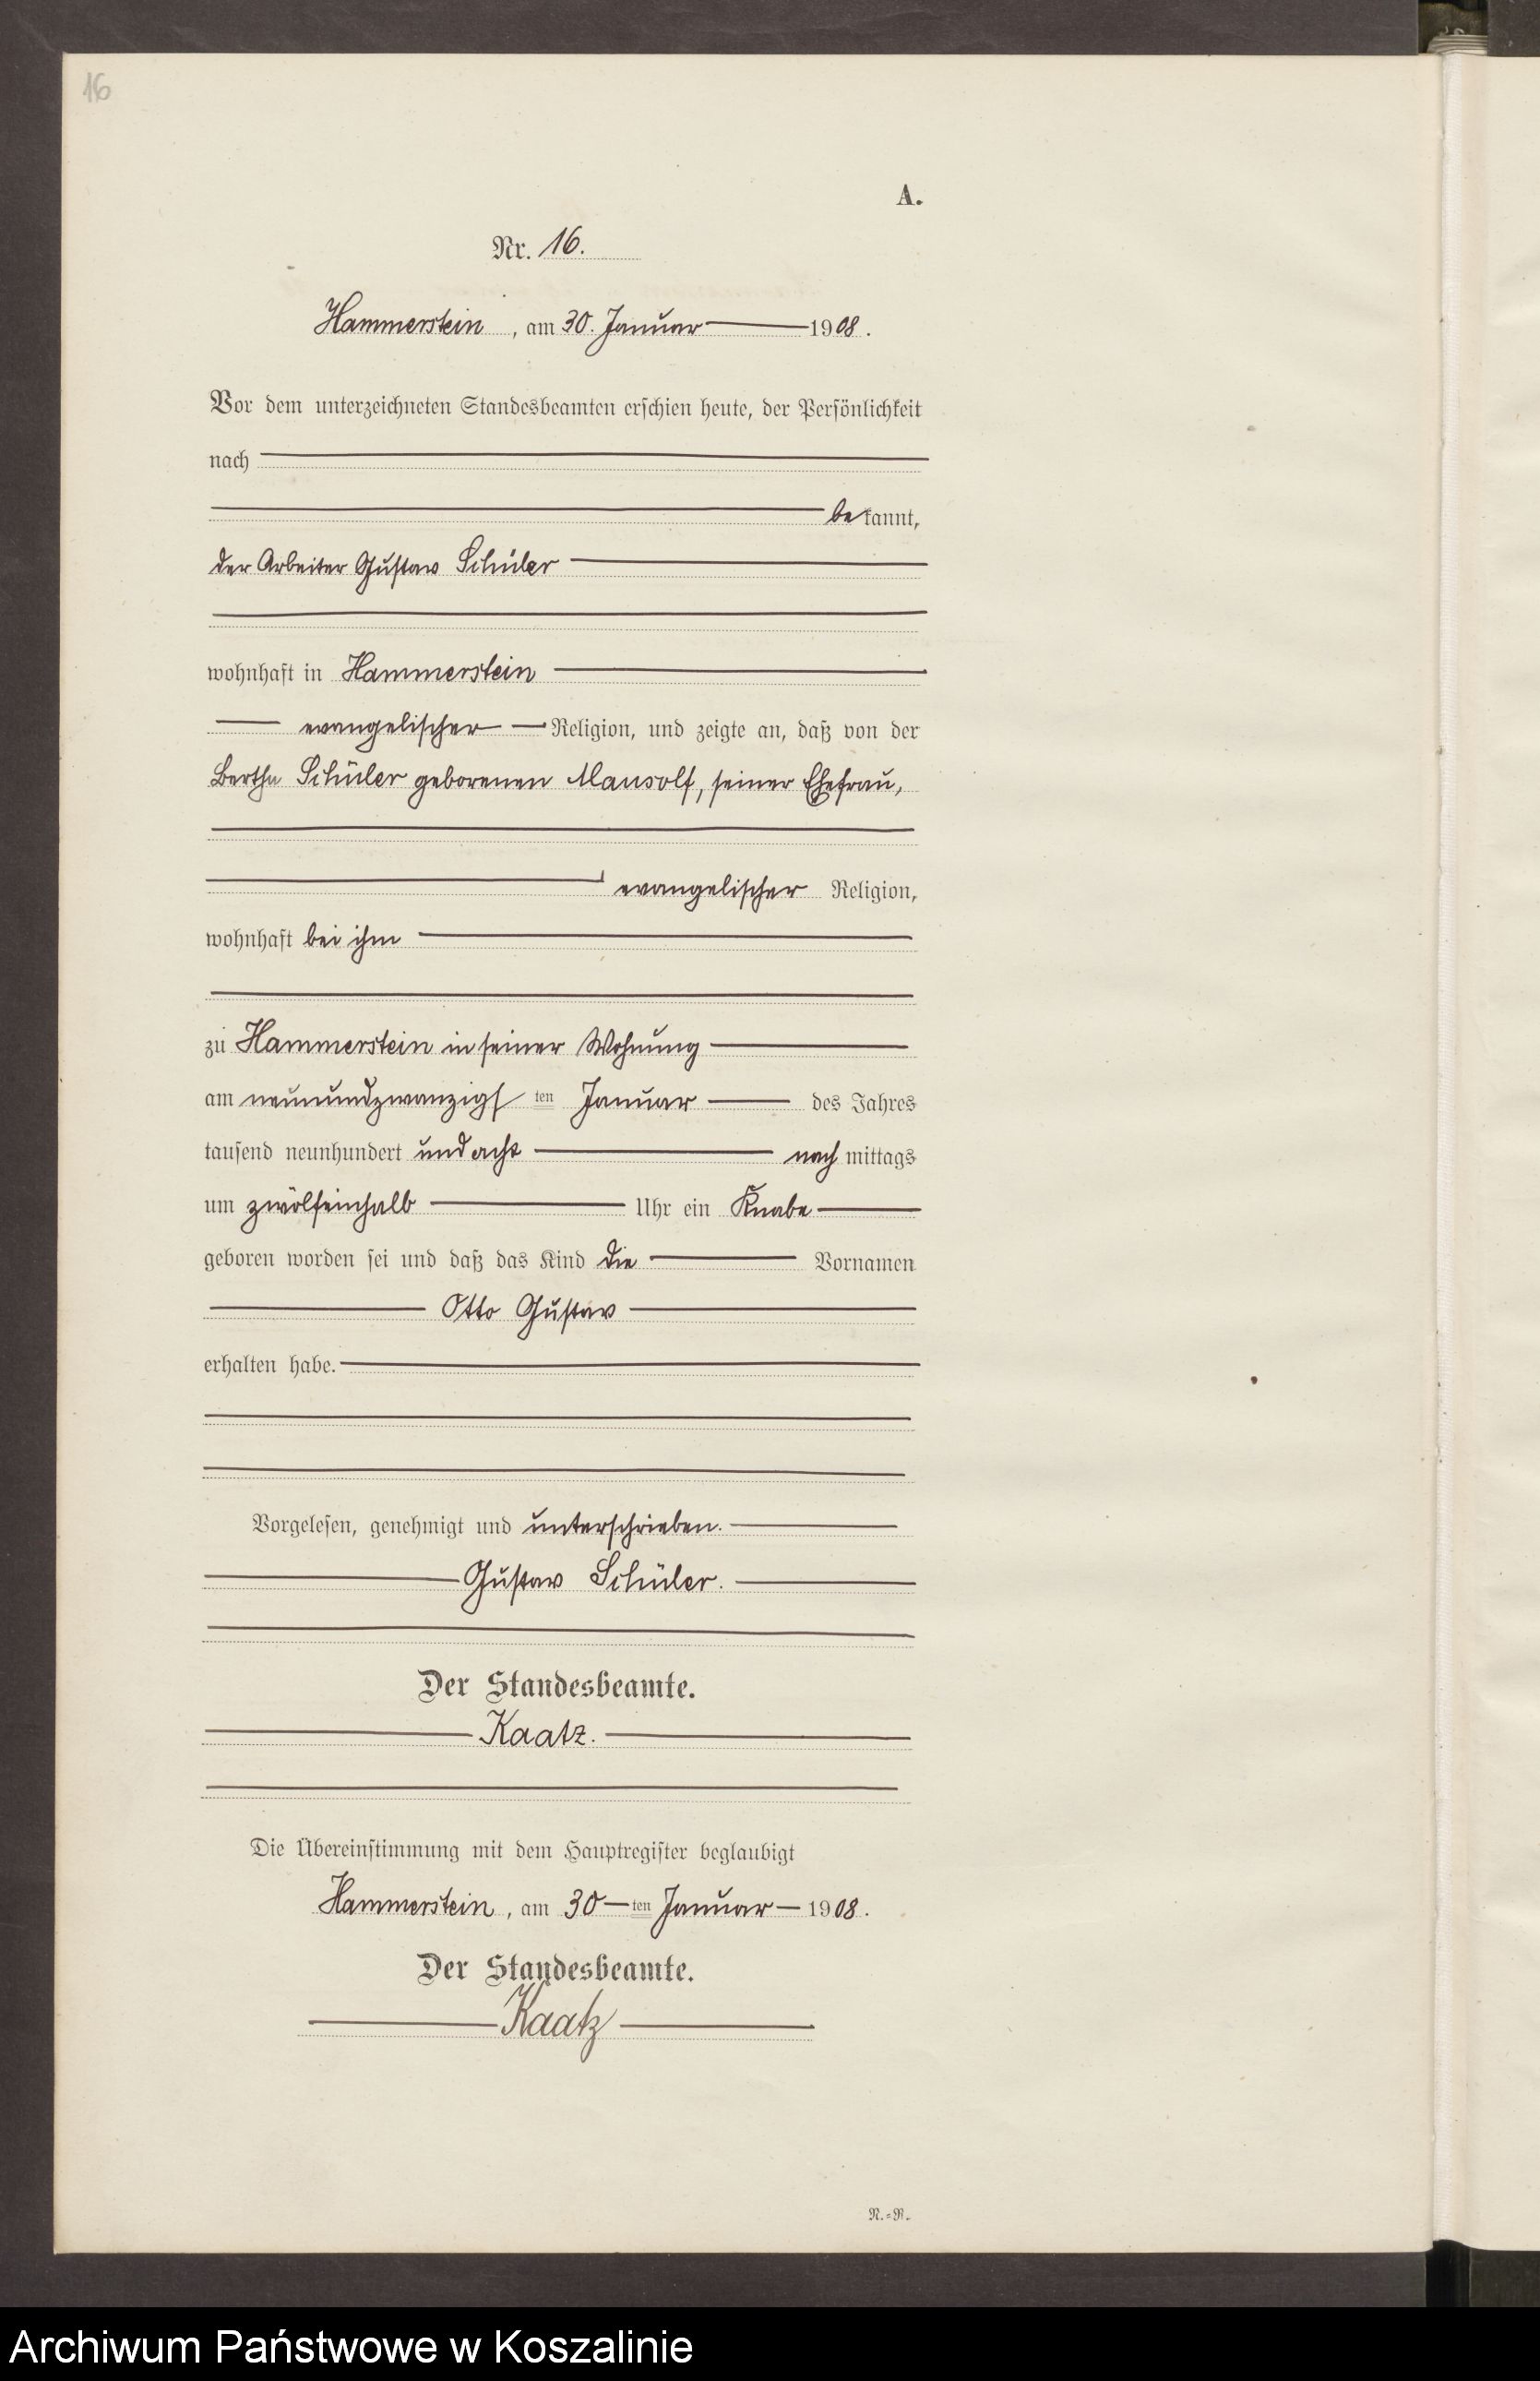 16
A.
Nr. 16.
Hammerstein, am 30. Januar 1908.
Vor dem unterzeichneten Standesbeamten erschien heute, der Persönlichkeit
nach
bekannt,
der Arbeiter Gustav Schüler
wohnhaft in Hammerstein
evangelischer Religion, und zeigte an, daß von der
Bertha Schüler geborenen Mansolf, seiner Ehefrau,
evangelischer Religion,
wohnhaft bei ihm
zu Hammerstein in seiner Wohnung
am neunundzwanzigsten Januar des Jahres
tausend neunhundert und acht nachmittags
um zwölfeinhalb Uhr ein Knabe
geboren worden sei und daß das Kind die Vornamen
Otto Gustav
erhalten habe.
Vorgelesen, genehmigt und unterschrieben.
Gustav Schüler.
Der Standesbeamte.
Kaatz.
Die Übereinstimmung mit dem Hauptregister beglaubigt
Hammerstein, am 30ten Januar 1908.
Der Standesbeamte.
Kaatz
N.=R.
Archiwum Państwowe w Koszalinie